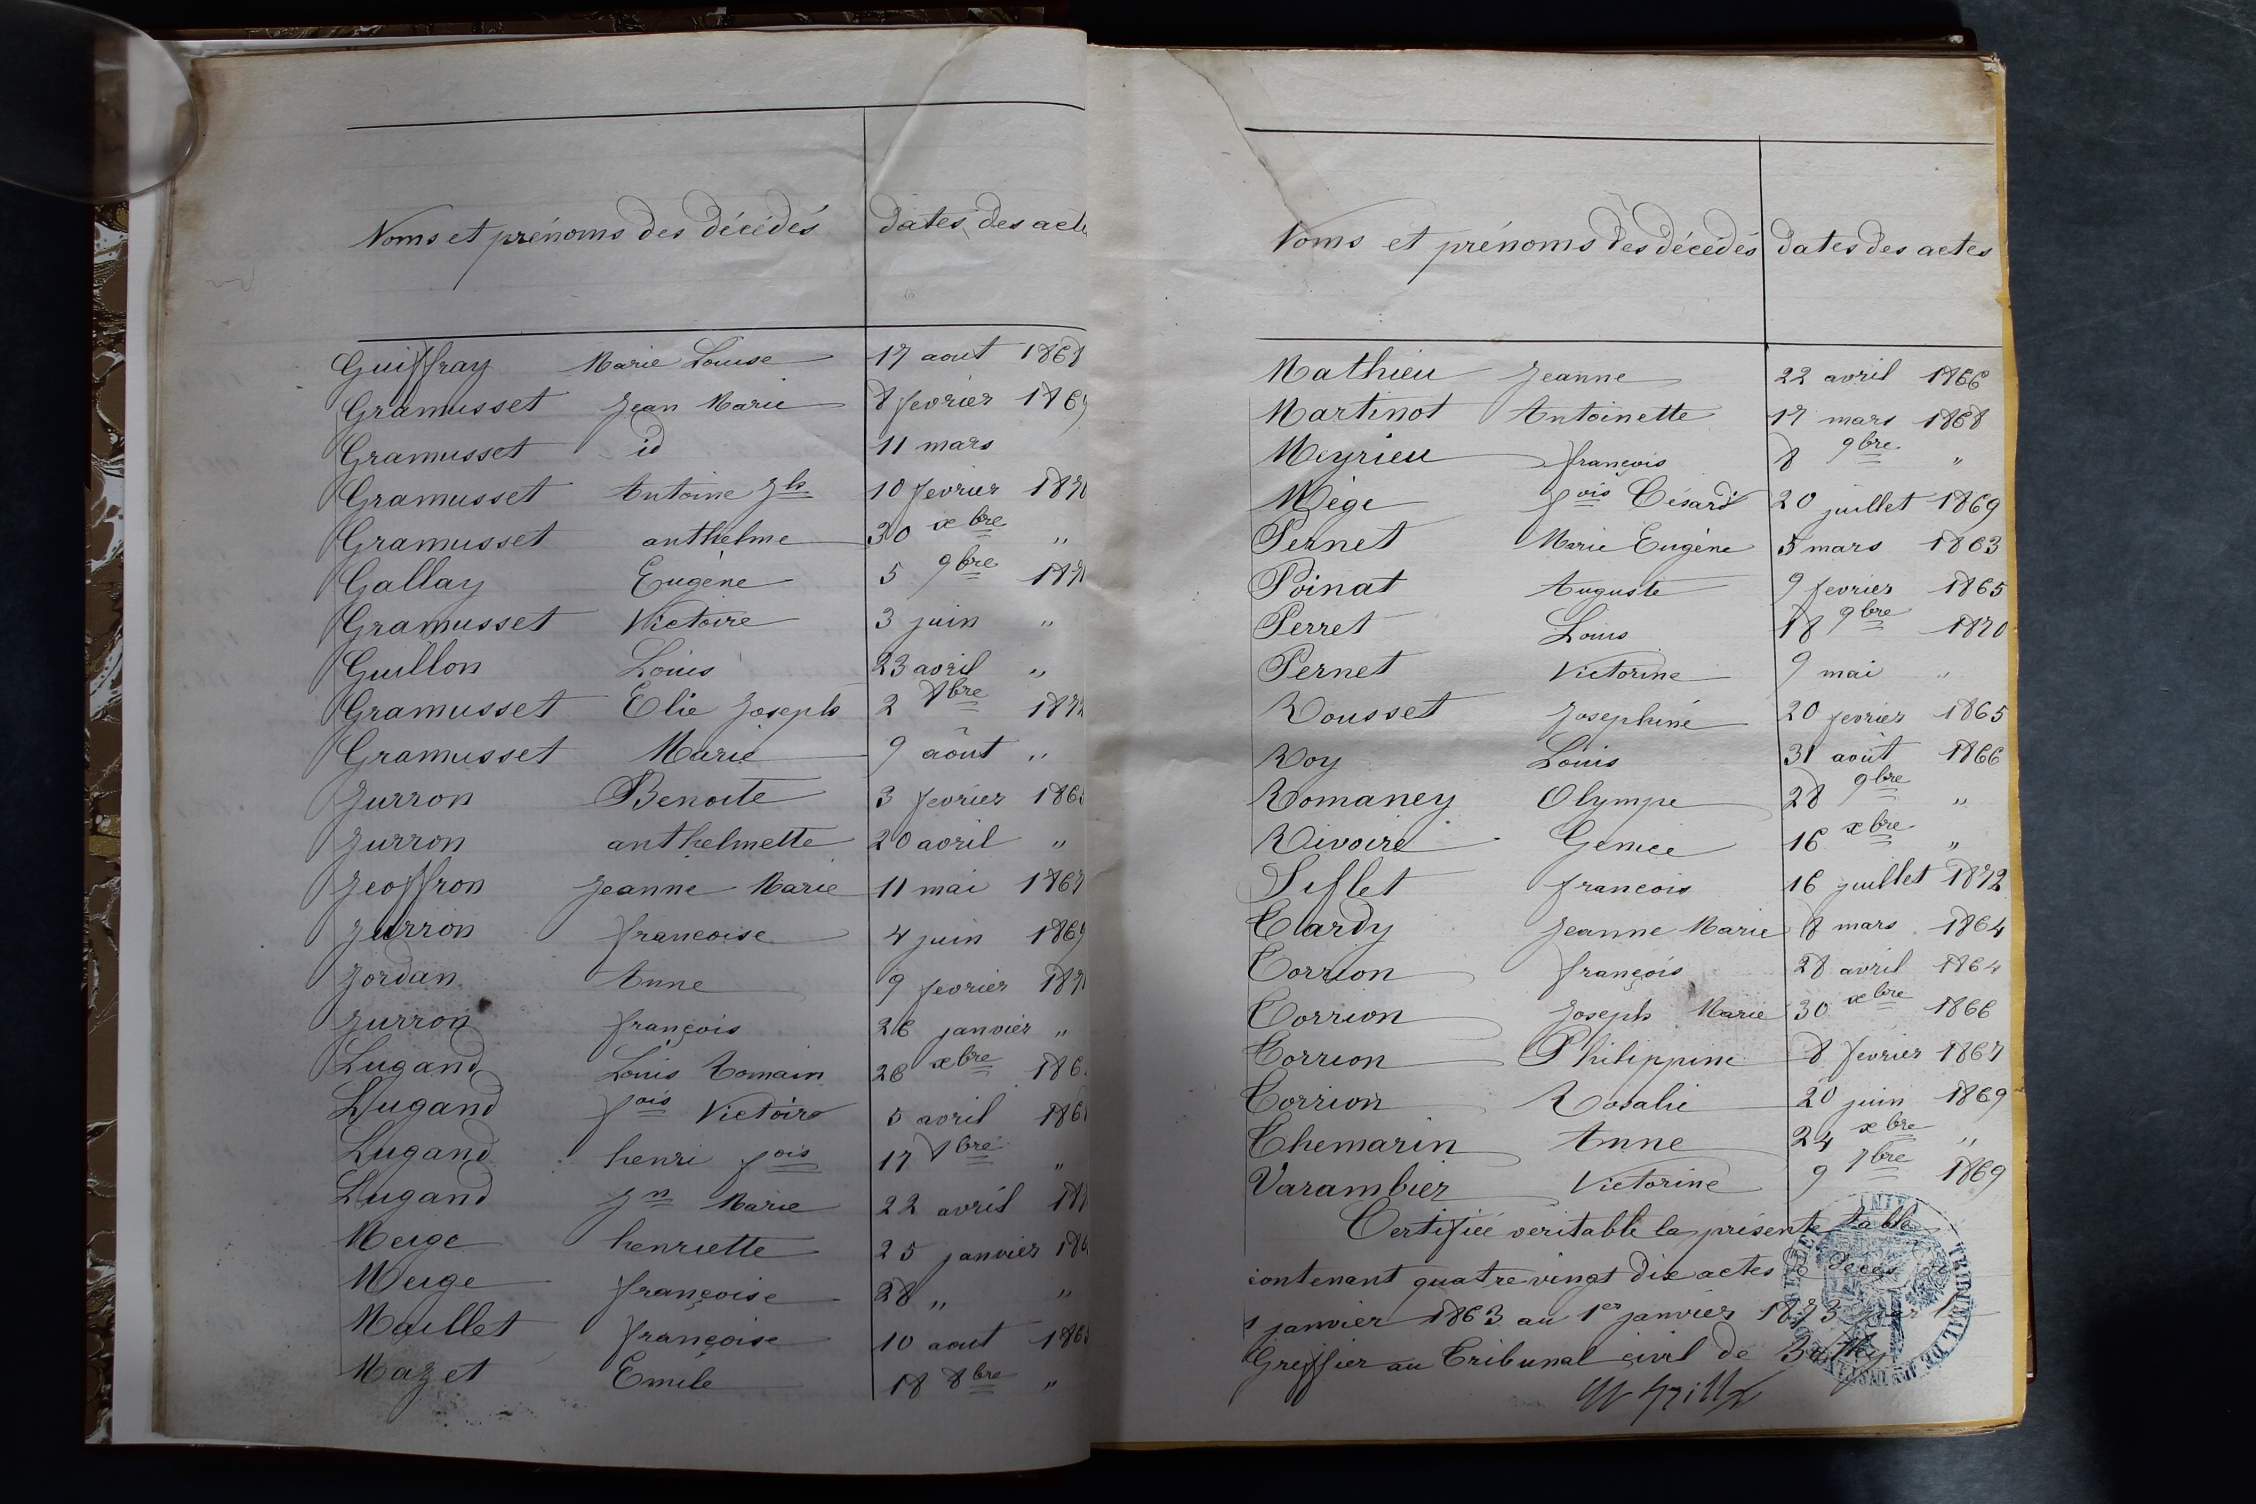 Noms et prénoms des décédés dates des acte
Guiffray Marie Louise 17 aout 1868
Gramusset Jean Marie 8 fevrier 1869
Gramusset id 11 mars
Gramusset Antoine Jh 10 fevrier 1870
Gramusset anthelme 30 xbre "
Gallay Eugène 5 9bre 187
Gramusset Victoire 3 juin "
Guillon Louis 23 avril "
Gramusset Elie Joseph 2 8bre 1872
Gramusset Marie 9 aôut "
Jurron Benoite 3 fevrier 186
Jurron anthelmette 20 avril "
Jeoffron Jeanne Marie 11 mai 1867
Jurron francoise 4 juin 1869
Jordan Anne 9 fevrier 187
Jurron françois 26 janvier "
Lugand Louis Romain 26 xbre 186
Lugand fois Victoire 5 avril 186
Lugand henri fois 17 7bre "
Lugand Jn Marie 22 avril 18
Meige henriette 25 janvier 186
Meige françoise 28 " "
Maillet françoise 10 aout 186
Mazet Emile 18 8bre "
Noms et prénoms des décédés dates des actes
Mathieu Jeanne 22 avril 1866
Martinot Antoinette 17 mars 1868
Meyrieu françois 8 9bre "
Mège fois Césard 20 juillet 1869
Pernet Marie Eugène 5 mars 1863
Poinat Auguste 9 fevrier 1865
Perret Louis 18 9bre 1870
Pernet Victorine 9 mai "
Rousset Josephine 20 fevrier 1865
Roy Louis 31 août 1866
Romaney Olympe 28 9bre "
Rivoire 16 xbre "
Siflet francois 16 juillet 1872
Tardy Jeanne Marie 8 mars 1864
Torrion françois 28 avril 1864
Torrion Joseph Marie 30 xbre 1866
Torrion Philippine 8 fevrier 1867
Torrion Rosalie 20 juin 1869
Themarin Anne 24 xbre "
Varambier Victorine 9 7bre 1869
Certifiée veritable la présente table
contenant quatre vingt dix actes de décès de
1 janvier 1863 au 1er janvier 1873 par le
Greffier au Tribunal civil de Belley
TRIBUNAL DE